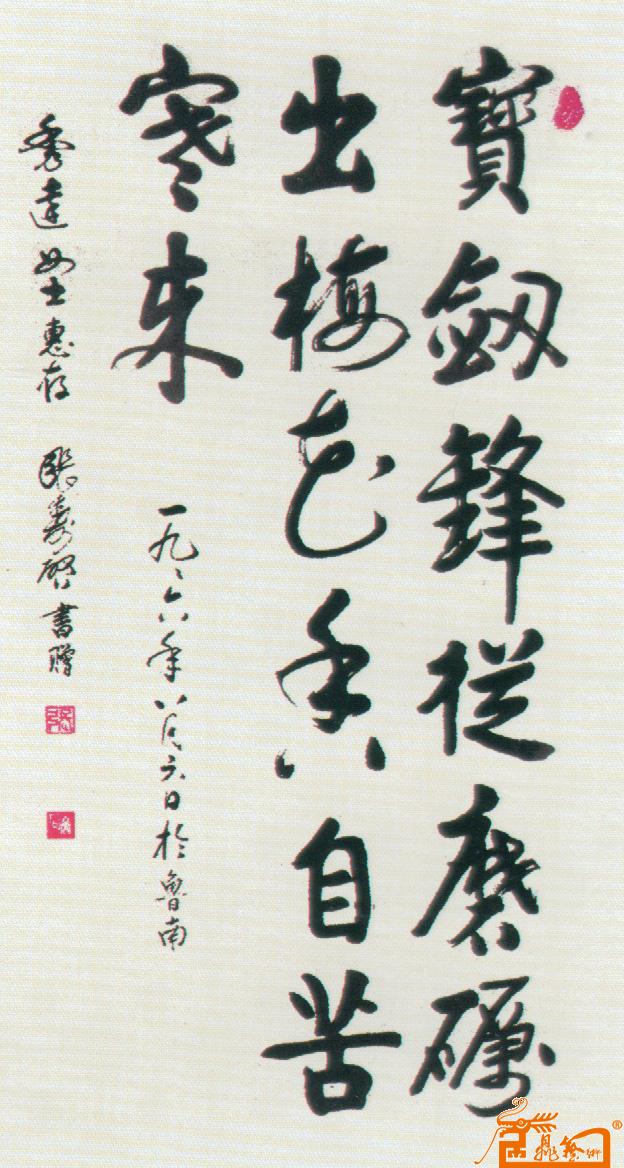 寶劔鋒從磨礪
出梅花香自苦
寒来
一九八六年八月六日於魯南
秀達女士惠存 书赠